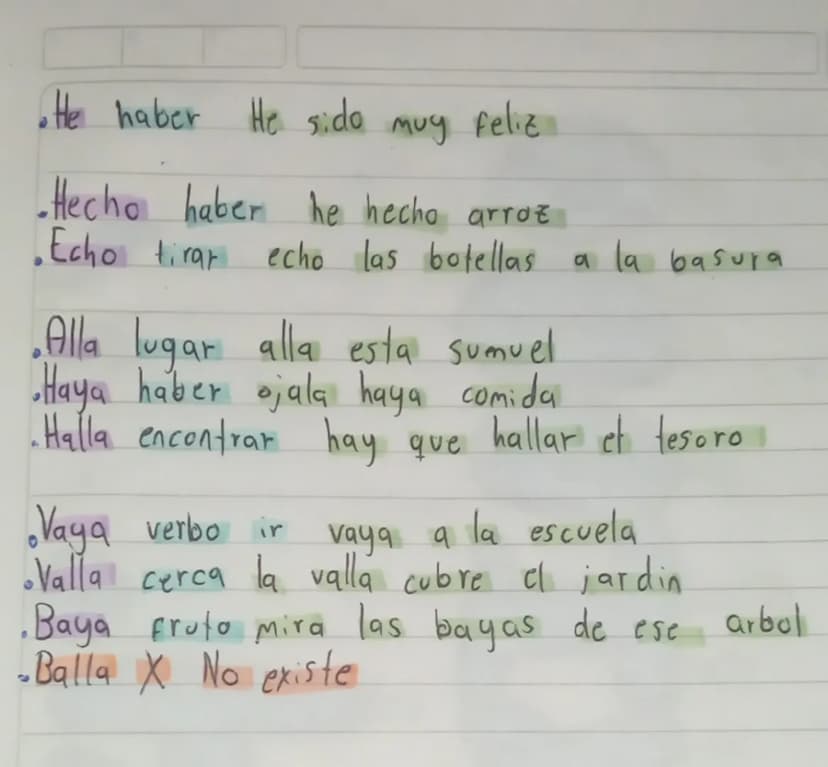 He haber He sido muy feliz
Hecho haber he hecho arroz
Echo tirar echo las botellas a la basura
Alla lugar alla esta sumuel
Haya haber ojala haya comida
Halla encontrar hay que hallar el tesoro
Vaya verbo ir vaya a la escuela
Valla cerca la valla cubre el jardin
Baya fruto mira las bayas de ese arbol
Balla X No existe